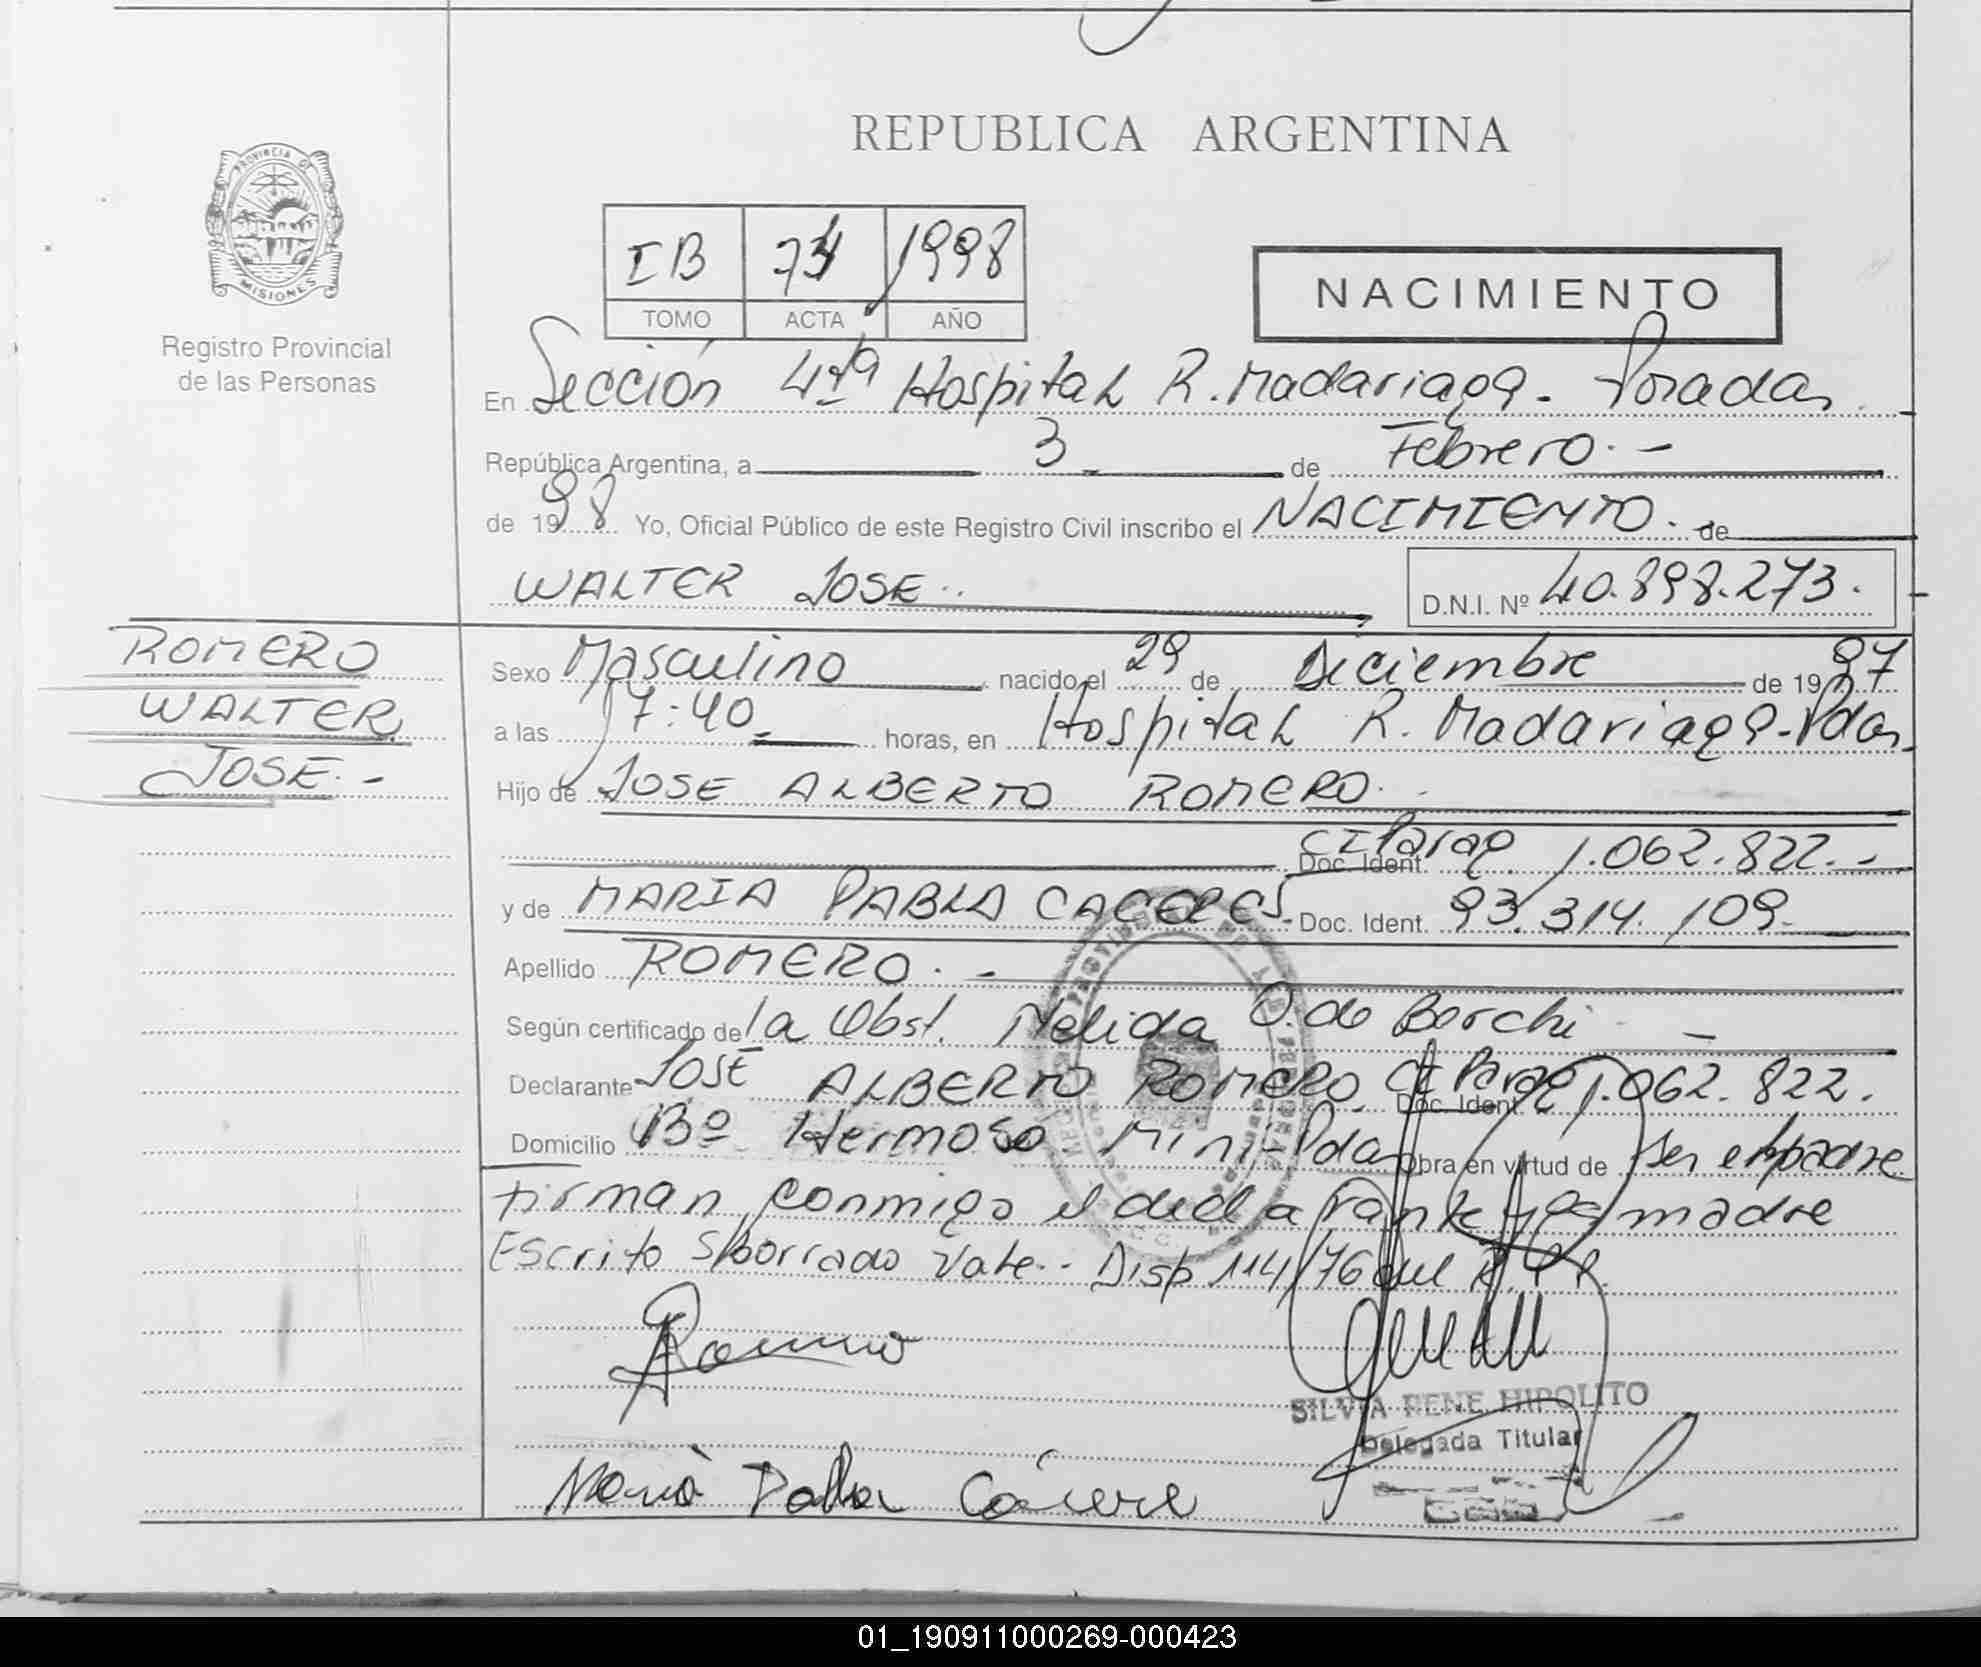 REPUBLICA ARGENTINA
PROVINCIA DE
MISIONES
Registro Provincial
de las Personas
IB 1998
TOMO ACTA AÑO
NACIMIENTO
En Sección 4ta Hospital R. Madariaga - Posadas
República Argentina, a 3 de Febrero. -
de 1998 Yo, Oficial Público de este Registro Civil inscribo el NACIMIENTO. de
WALTER JOSE.. D.N.I. Nº 40.898.273.
ROMERO
WALTER
JOSE. -
Sexo Masculino nacido el 29 de Diciembre de 1997
a las 17:40 horas, en Hospital R. Madariaga - Pdas.
Hijo de JOSE ALBERTO ROMERO.
Doc. Ident. CI Parag 1.062.822.-
y de MARIA PABLA CACERES - Doc. Ident. 93.314.109
Apellido ROMERO. -
Según certificado de la Obst. Nélida O. de Borchi -
Declarante JOSE ALBERTO ROMERO Doc. Ident. CI Parag 1.062.822.
Domicilio Bº Hermoso Mini - Pdas Obra en virtud de ser el padre
Firman conmigo el declarante y la madre
Escrito s/borrado Vale.- Disp 114/76 del R.P.P.
Romero
SILVIA RENE HIPOLITO
Delegada Titular
María Pabla Cácere
01_190911000269-000423